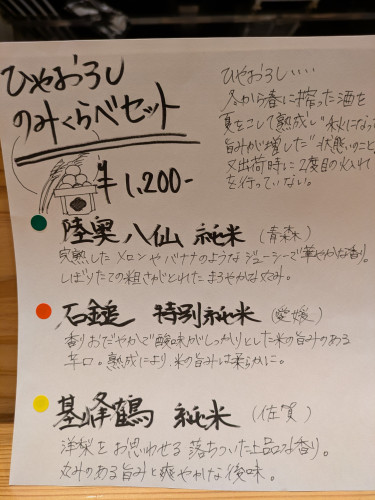 ひやおろし
のみくらべセット
¥1,200-
ひやおろし・・・・
冬から春に搾った酒を
夏をこして熟成し"秋になって
旨みが増した"状態のこと。
又出荷時に2度目の火入れ
を行っていない。
陸奥八仙 純米（青森）
完熟したメロンやバナナのようなジューシーで華やかな香り。
しぼりたての粗さがとれたまろやかな丸み。
石鎚 特別純米（愛媛）
香りおだやかで酸味がしっかりとした米の旨みのある
辛口。熟成により、米の旨みは柔らかに。
基峰鶴 純米（佐賀）
洋梨をお思わせる落ちついた上品な香り。
丸みのある旨みと爽やかな後味。